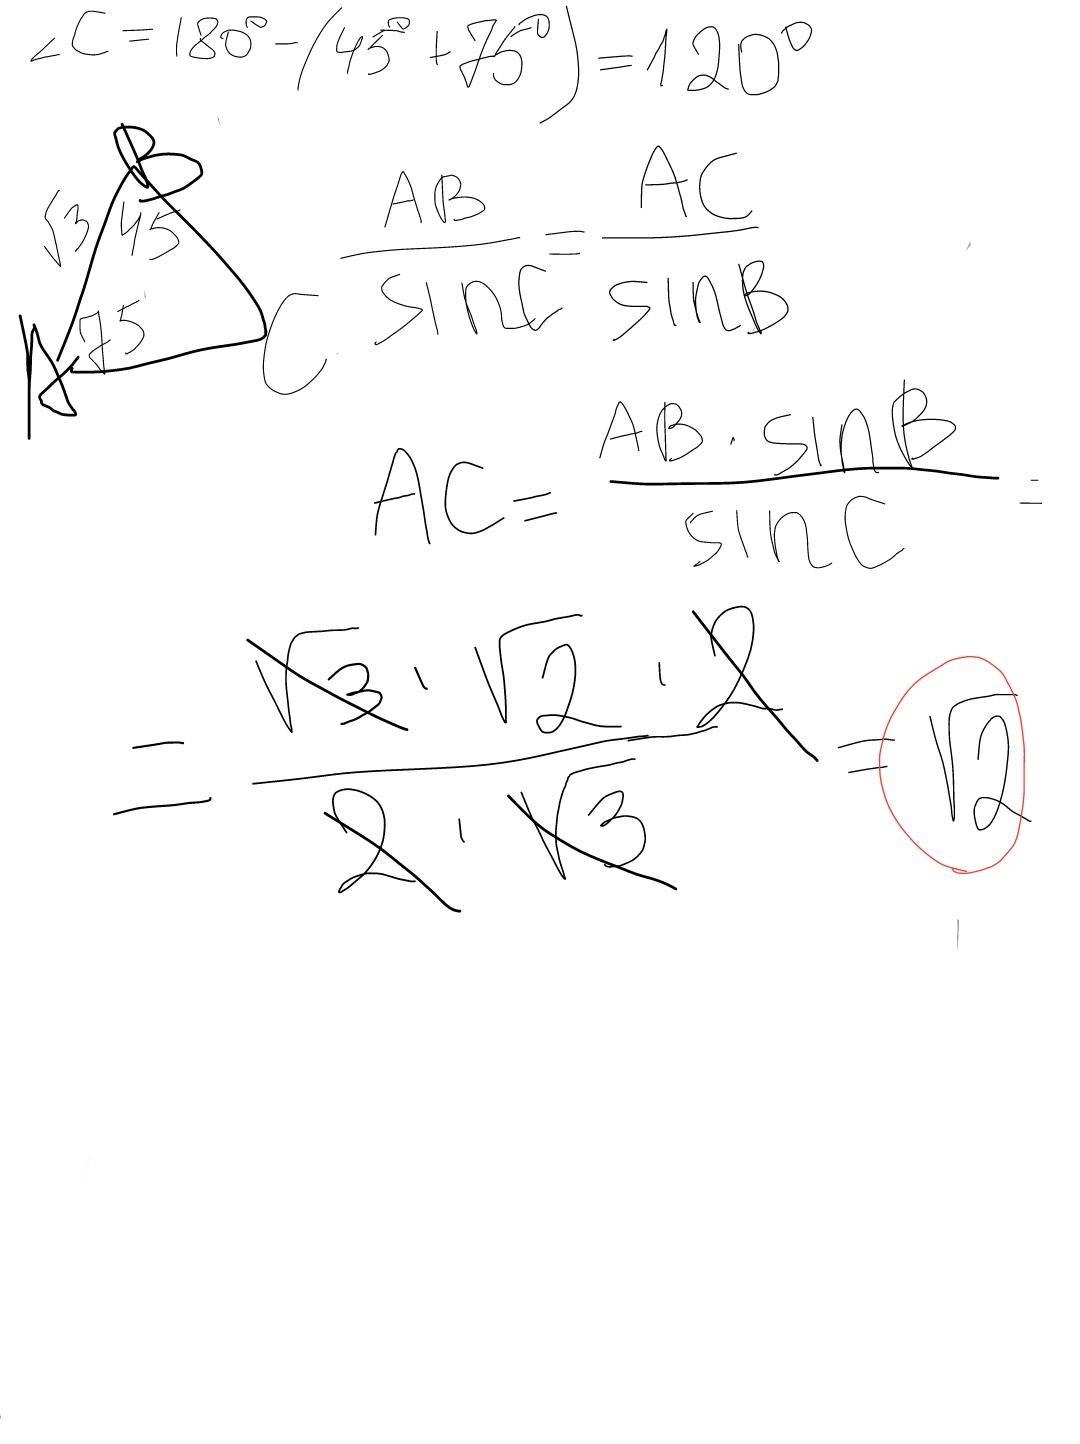 ∠C = 180° - (45° + 75°) = 120°
B
√3 45
75
A C
AB/sinC = AC/sinB
AC = AB · sinB/sinC =
= √3 · √2 · 2/2 · √3 = √2